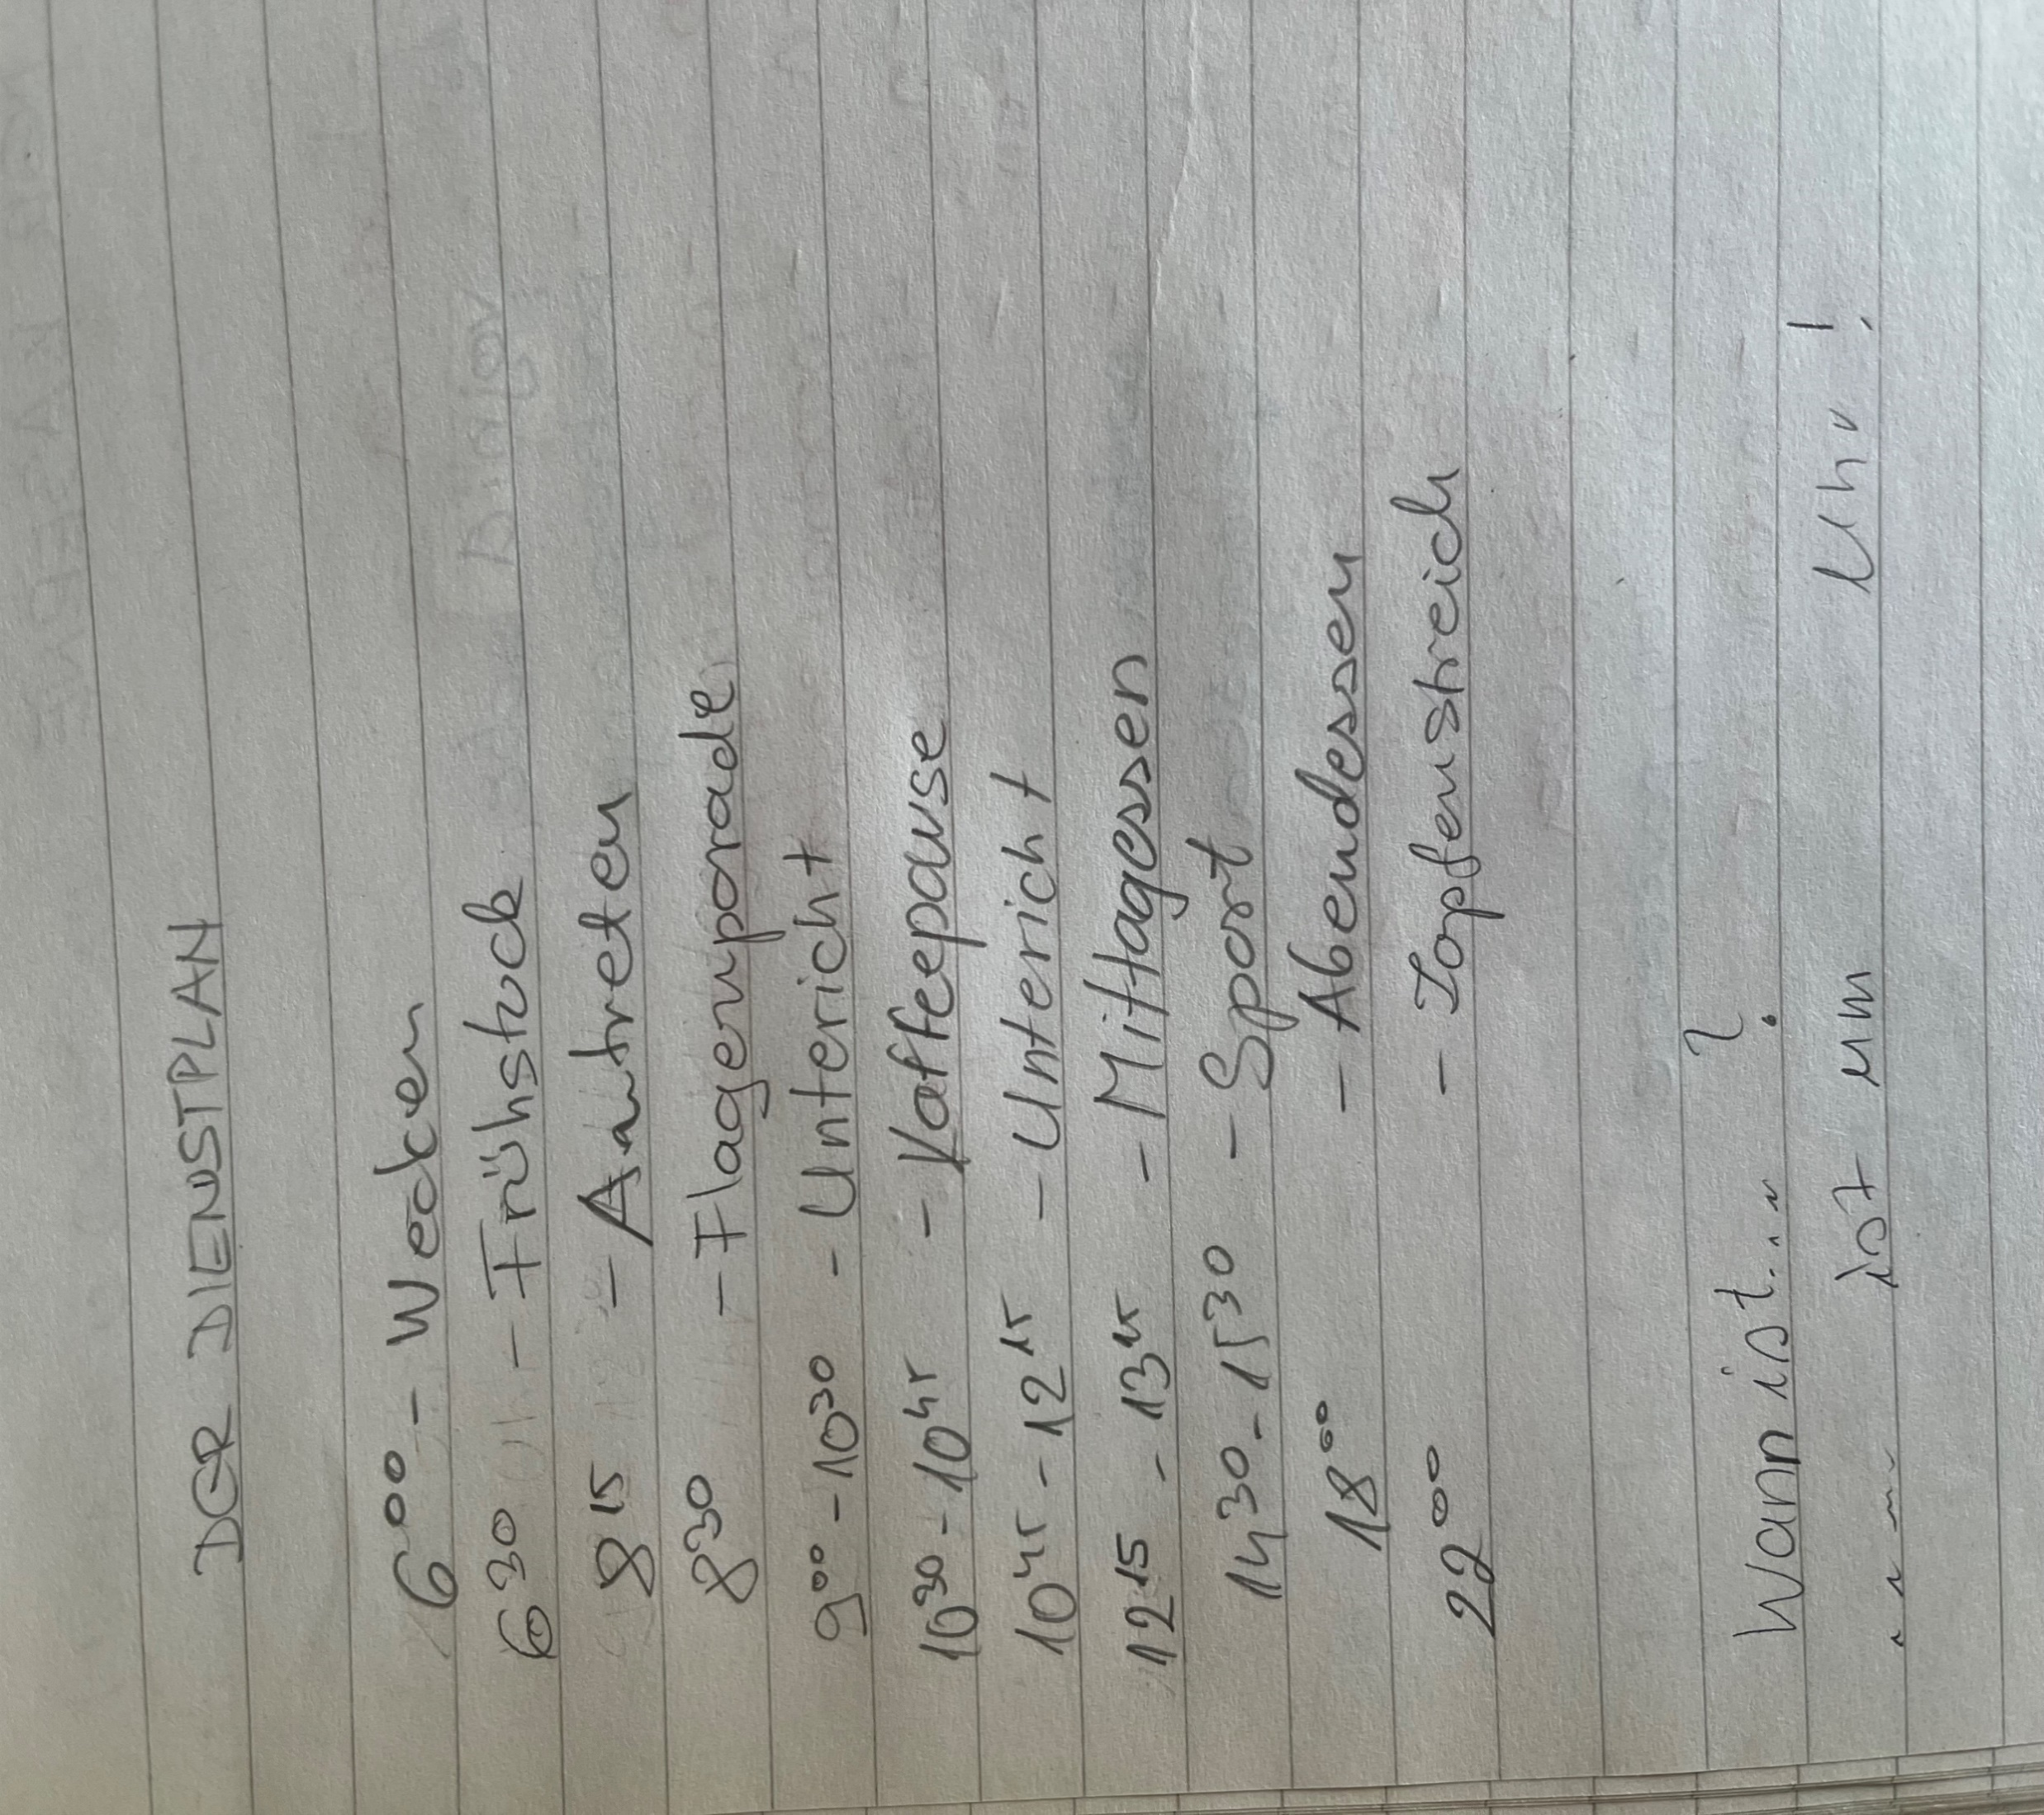 DER DIENSTPLAN
6⁰⁰ - Wecken
6³⁰ - Frühstuck
8¹⁵ - Antreten
8³⁰ - Flagenparade
9⁰⁰ - 10³⁰ - Untericht
10³⁰ - 10⁴⁵ - Kaffeepause
10⁴⁵ - 12¹⁵ - Untericht
12¹⁵ - 13⁴⁵ - Mittagessen
14³⁰ - 15³⁰ - Sport
18⁰⁰ - Abendessen
22⁰⁰ - Zapfenstreich
Wann ist.... ?
.... ist um Uhr!